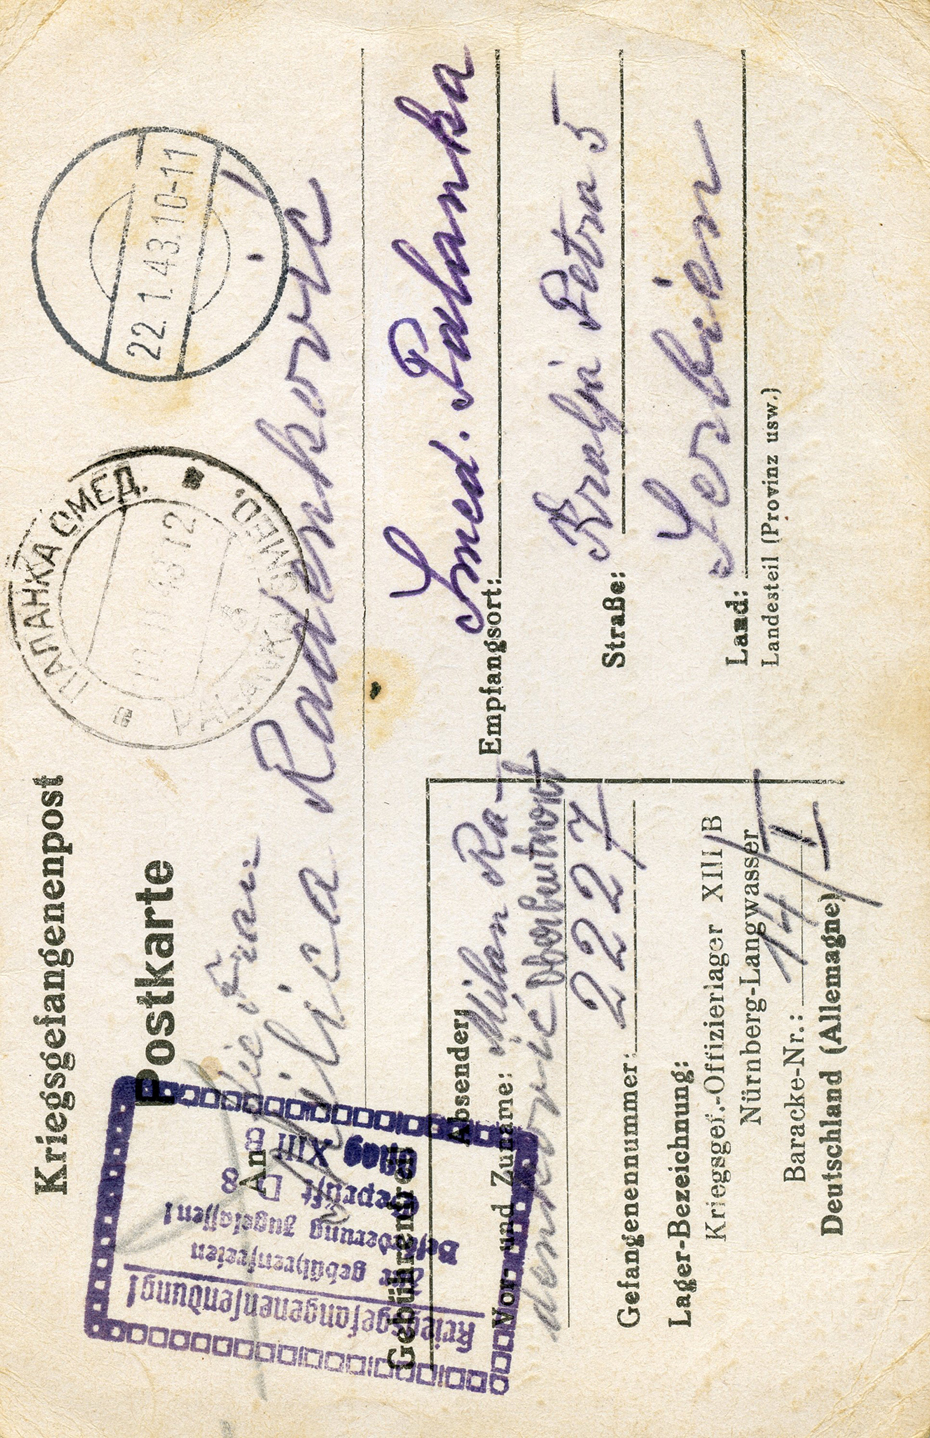 Kriegsgefangenenpost
Postkarte
22.1.43.10-11
ПАЛАНКА СМЕД.
PALANKA SMED.
An die Frau
Milica Radenković
Gebührenfrei!
Empfangsort: Smed. Palanka
Straße: Kralja Petra 5
Land: Serbien
Landesteil (Provinz usw.)
Absender:
Vor- und Zuname: Milan Ra-
denković
Gefangenennummer: 2227
Lager-Bezeichnung:
Kriegsgef.-Offizierlager XIII/B
Nürnberg-Langwasser
Baracke-Nr.: 14/I
Deutschland (Allemagne)
Kriegsgefangenensendung!
Zur gebührenfreien
Beförderung zugelassen!
Geprüft D 8
Oflag XIII B